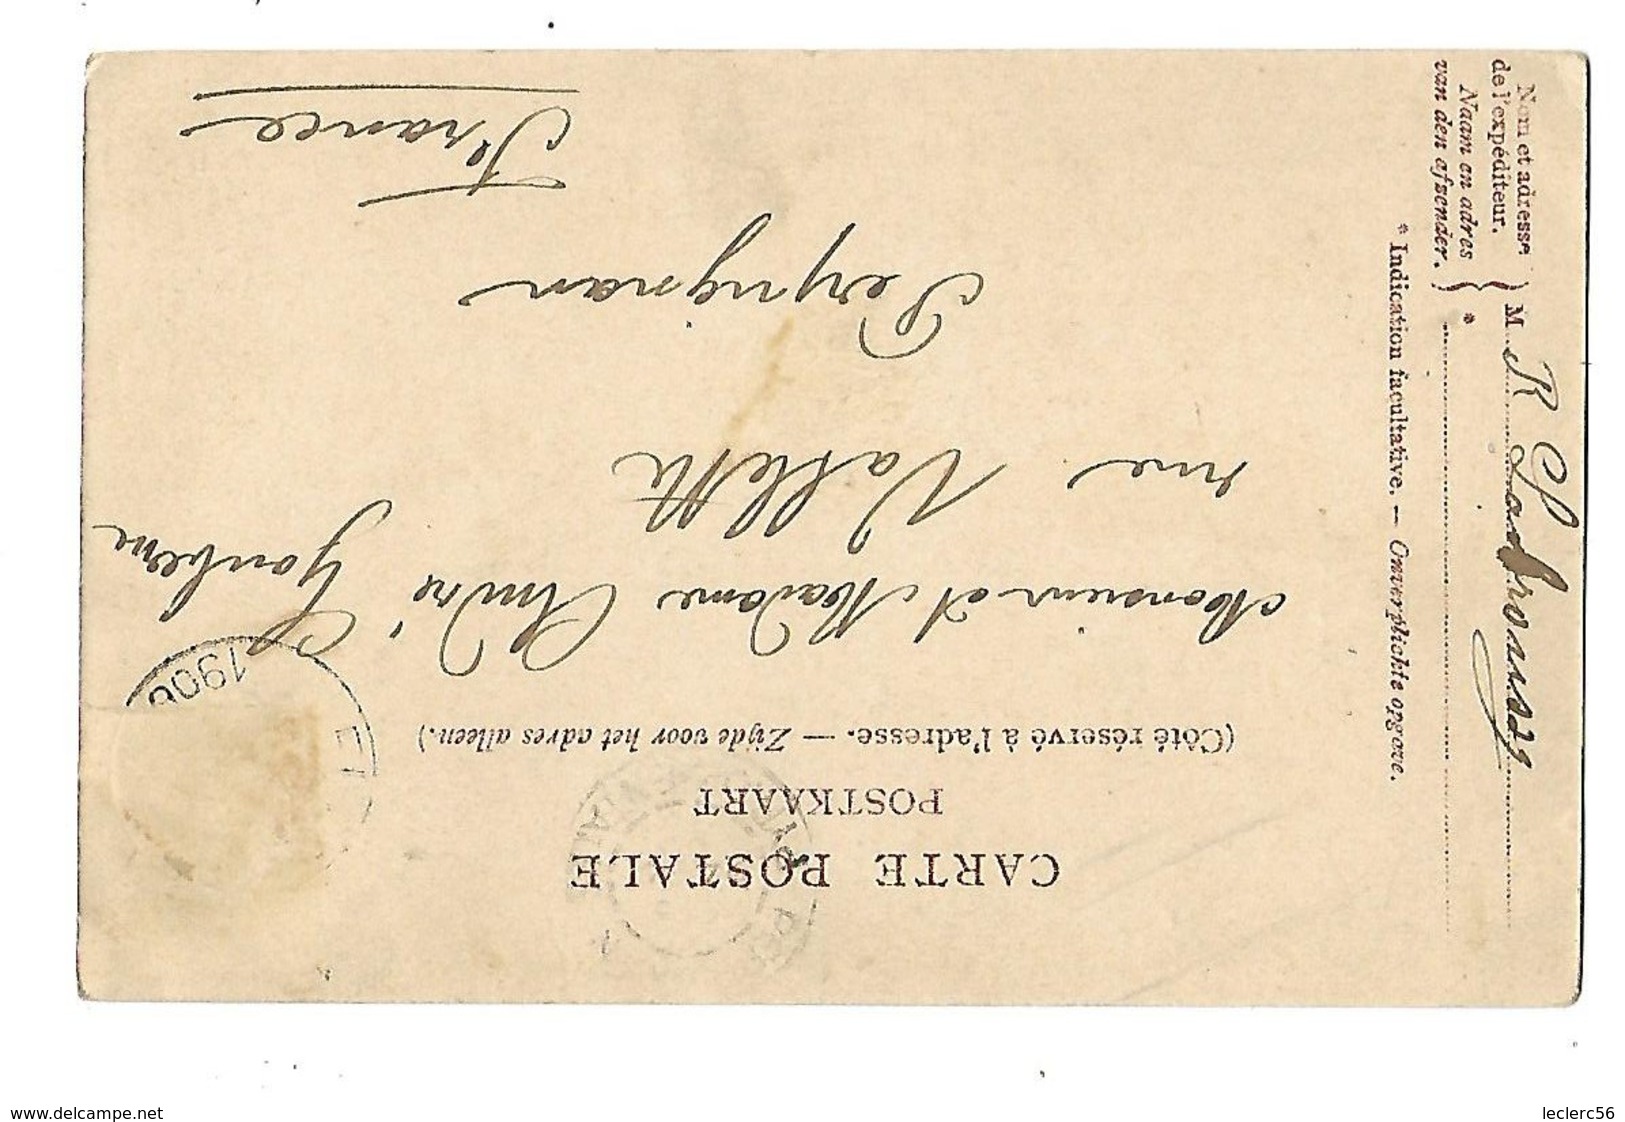 CARTE POSTALE
POSTKAART
(Côté réservé à l'adresse. — Zijde voor het adres alleen.)
1906
Monsieur et Madame André
rue
Perpignan
France
Nom et adresse
de l'expéditeur.
Naam en adres
van den afzender.
} M R
} *
* Indication facultative. — Onverplichte opgave.
www.delcampe.net
leclerc56